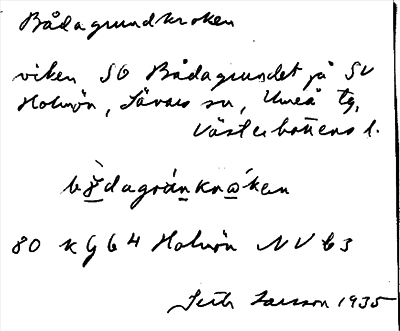 Bådagrundkroken
viken SO Bådagrundet på SV
Holmön, Sävars sn, Umeå tg,
Västerbottens l.
80 K G 6 4 Holmön NV b3
Larsson 1935